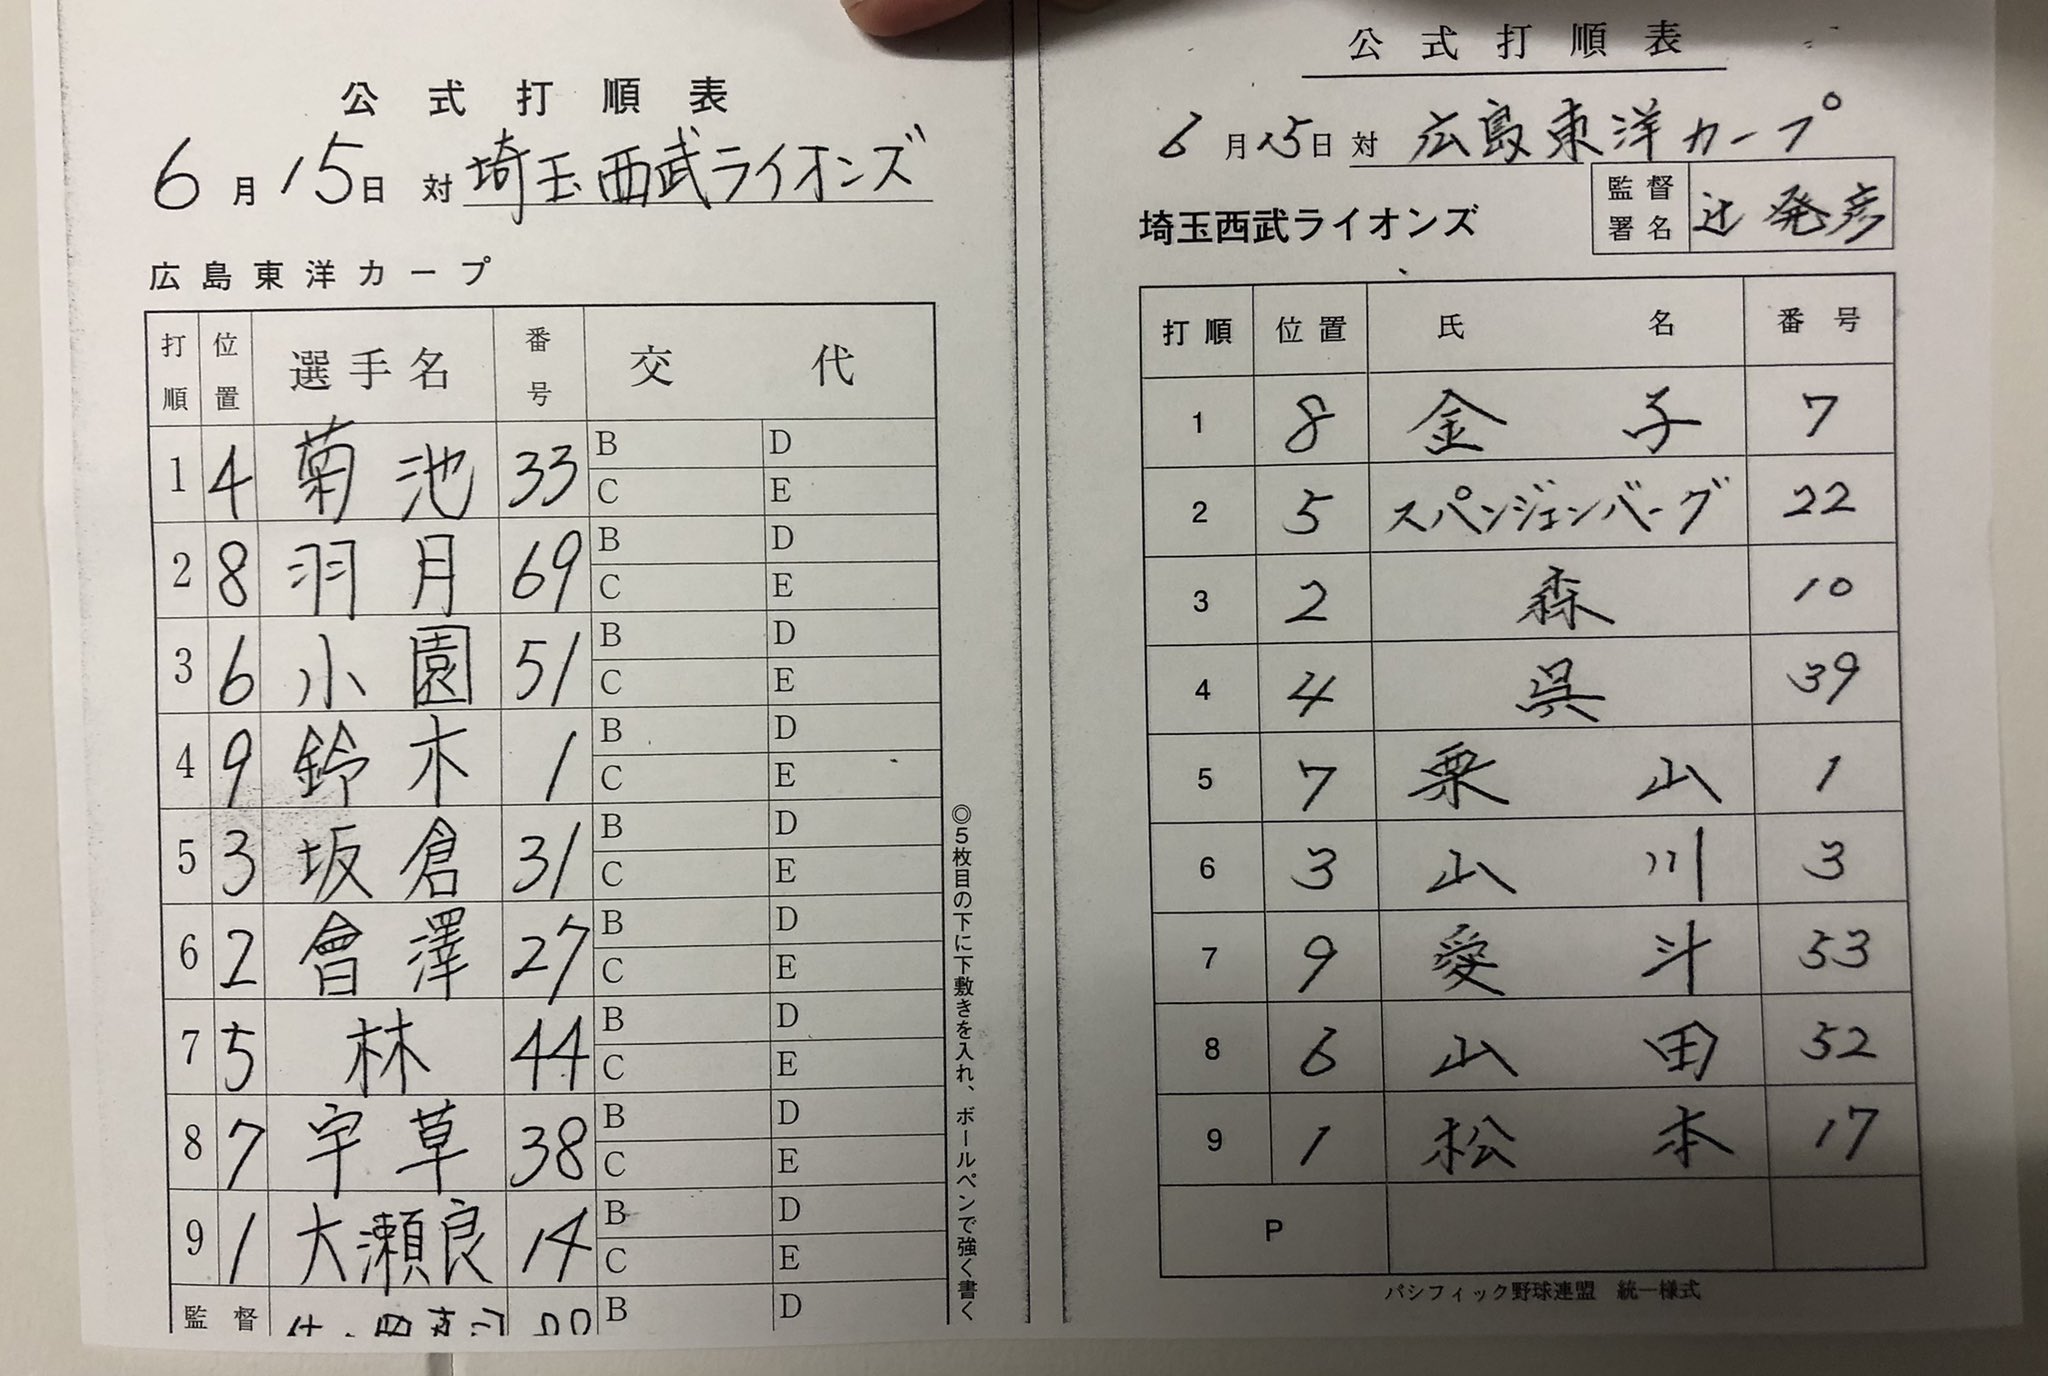 公式打順表
6月15日 対 埼玉西武ライオンズ
広島東洋カープ
打順 位置 選手名 番号 交代
1 4 菊池 33 B D
C E
2 8 羽月 69 B D
C E
3 6 小園 51 B D
C E
4 9 鈴木 1 B D
C E
5 3 坂倉 31 B D
C E
6 2 會澤 27 B D
C E
7 5 林 44 B D
C E
8 7 宇草 38 B D
C E
9 1 大瀬良 14 B D
C E
監督 B D
◎5枚目の下に下敷きを入れ、ボールペンで強く書く
公式打順表
6月15日 対 広島東洋カープ
埼玉西武ライオンズ 監督署名 辻発彦
打順 位置 氏名 番号
1 8 金子 7
2 5 スパンジェンバーグ 22
3 2 森 10
4 4 呉 39
5 7 栗山 1
6 3 山川 3
7 9 愛斗 53
8 6 山田 52
9 1 松本 17
P
パシフィック野球連盟 統一様式